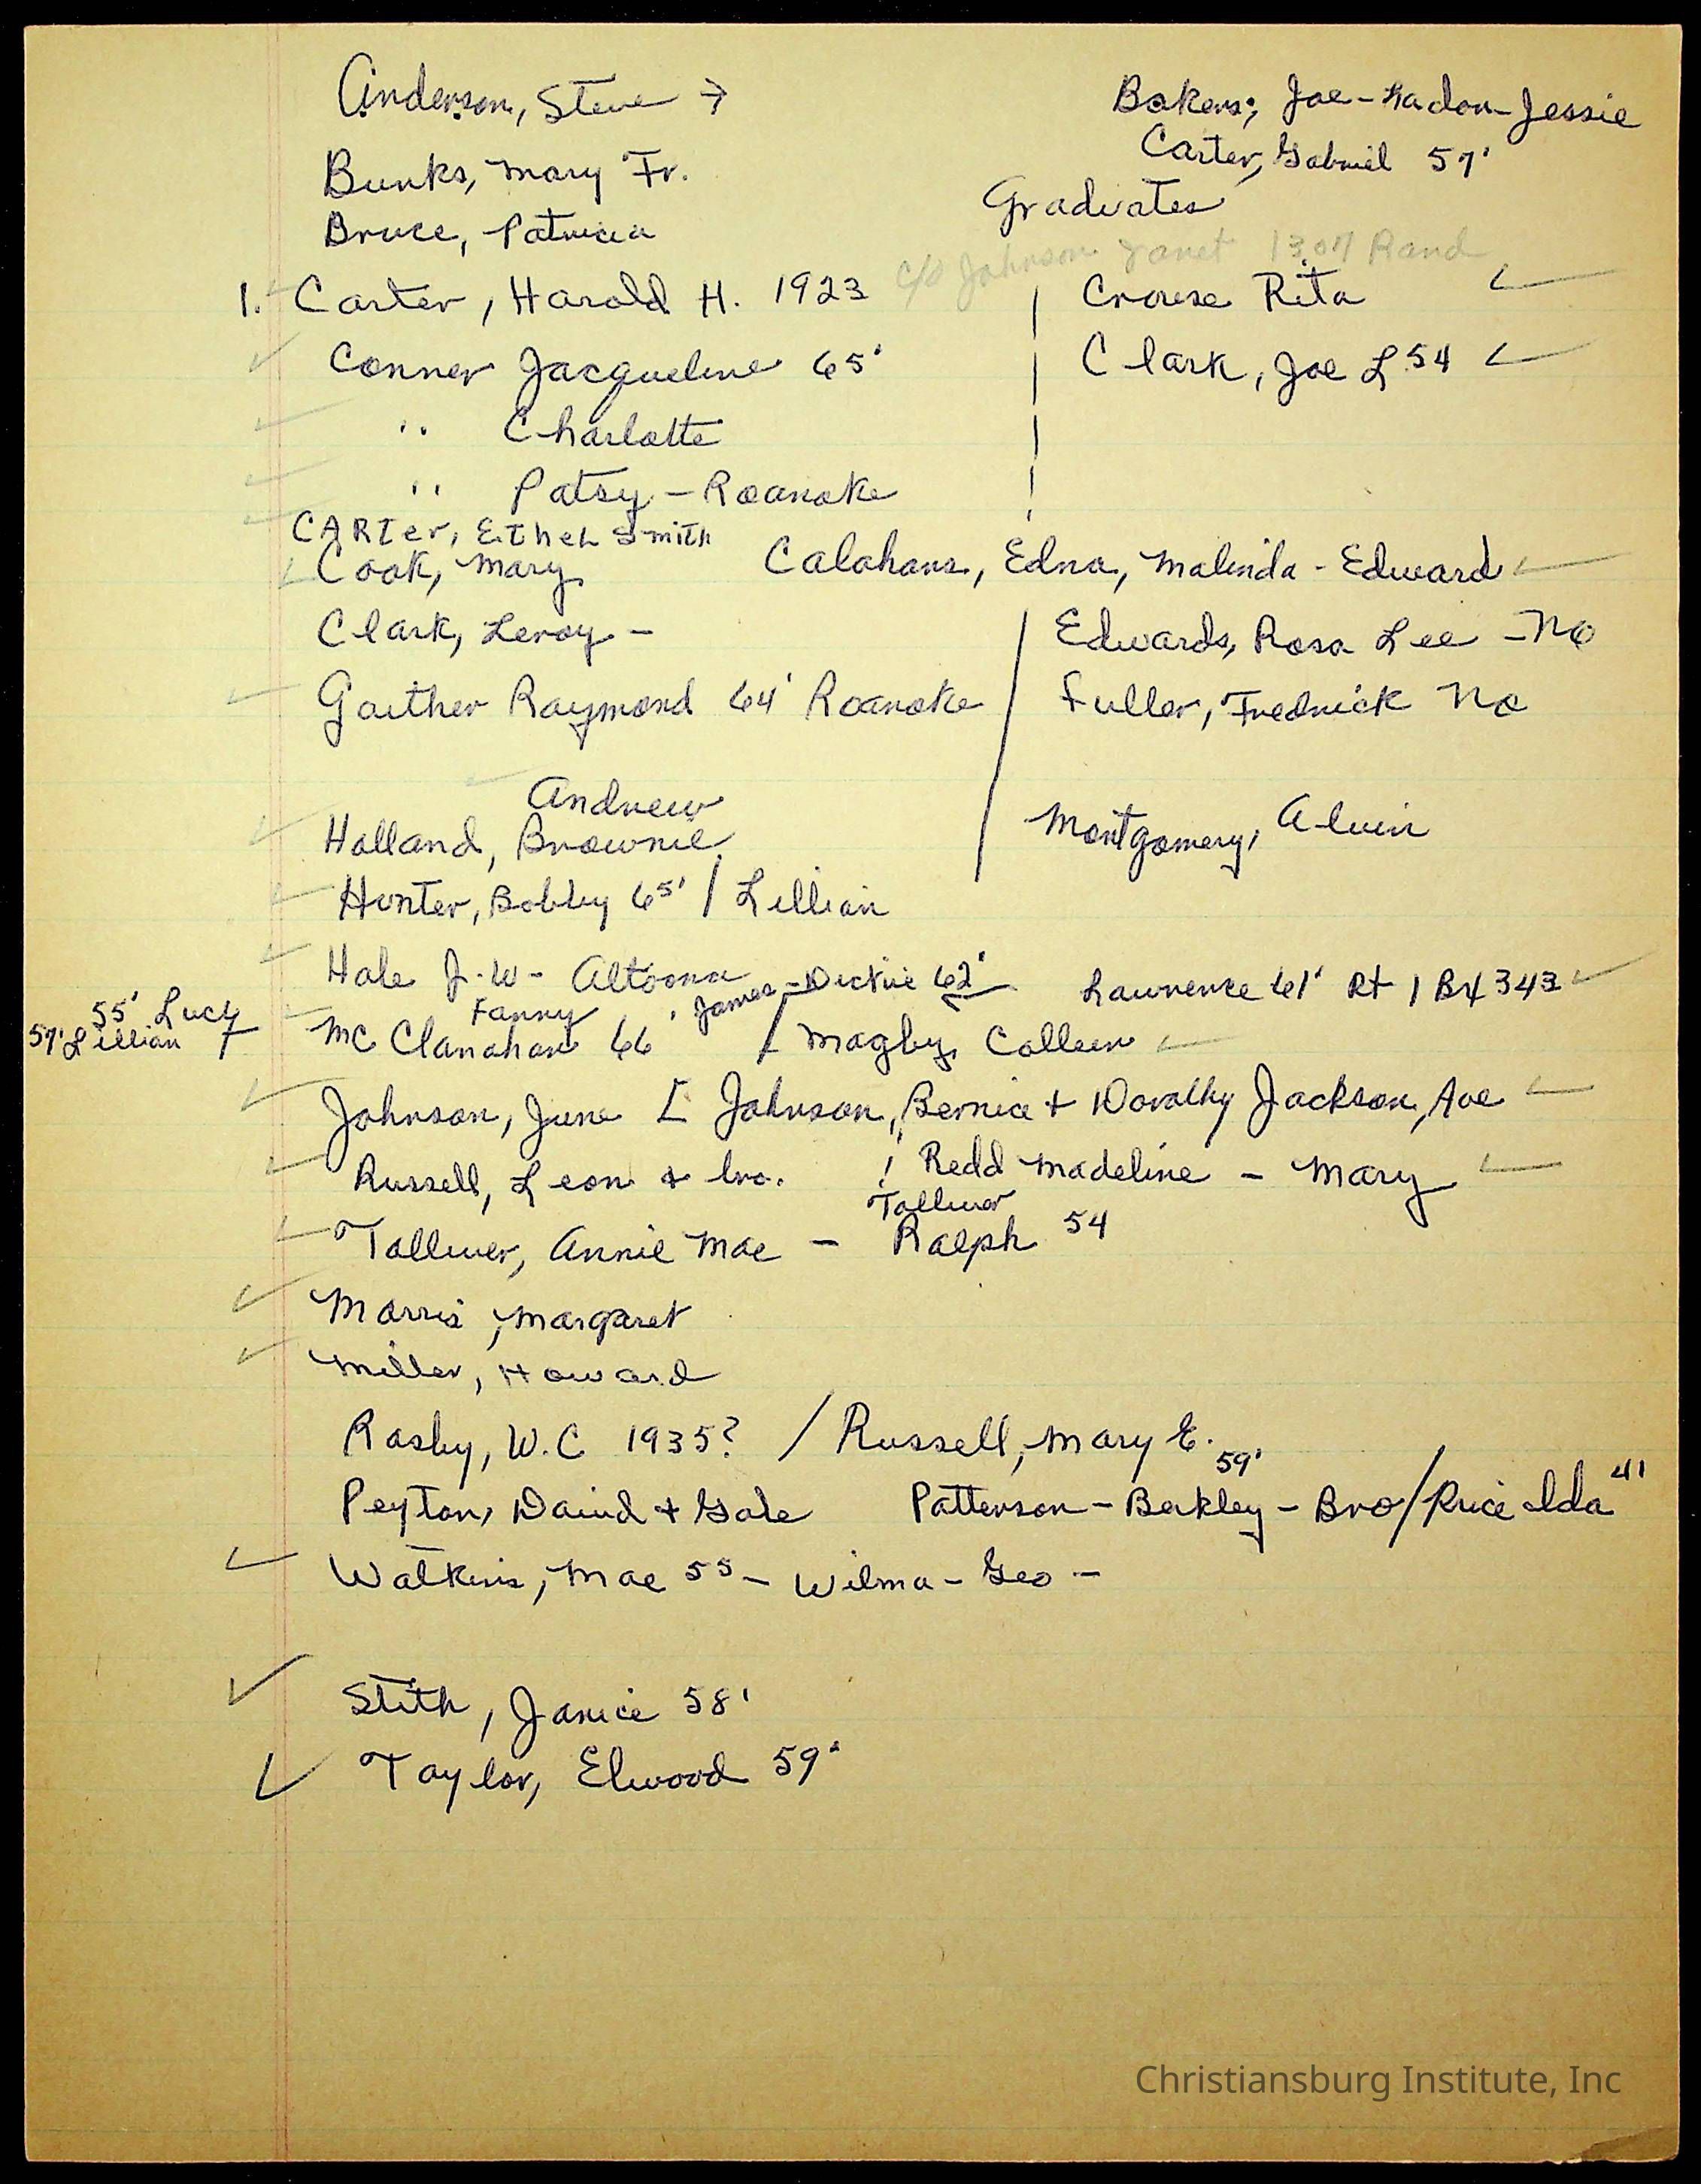 Anderson, Steve → Bakers; Joe - Ladon - Jessie
Carter, Gabriel 57'
Bunks, Mary Fr.
Graduates
Bruce, Patricia
c/o Johnson Janet 1307 Rand
1. Carter, Harold H. 1923 Crouse Rita
Conner Jacqueline 65' Clark, Joe L 54
" Charlotte
" Patsy - Roanoke
CARTer, EThel Smith
Cook, Mary Calahans, Edna, Malinda - Edward
Clark, Leroy - Edwards, Rosa Lee - No
Gaither Raymond 64' Roanoke / Fuller, Fredrick No
Andrew
Holland, Brownie Montgomery, Alvin
Hunter, Bobby 65' / Lillian
Hale J. W - Altoona James - Dickie 62' Lawrence 61' Rt 1 Bx 343
55' Lucy Fanny
57' Lillian Mc Clanahan 66 / Magby, Colleen
Johnson, June [ Johnson, Bernice + Dorothy Jackson, Joe
Russell, Leon & bro. Redd Madeline - Mary
Tolliver
Tolliver, Annie Mae - Ralph 54
Morris, Margaret
Miller, Howard
Rasby, W.C 1935? / Russell, Mary E.
59' 41
Peyton, David + Gale Patterson - Berkley - Bro / Price Ida
Watkins, Mae 55 - Wilma - Geo -
Stith, Janice 58'
Taylor, Elwood 59'
Christiansburg Institute, Inc